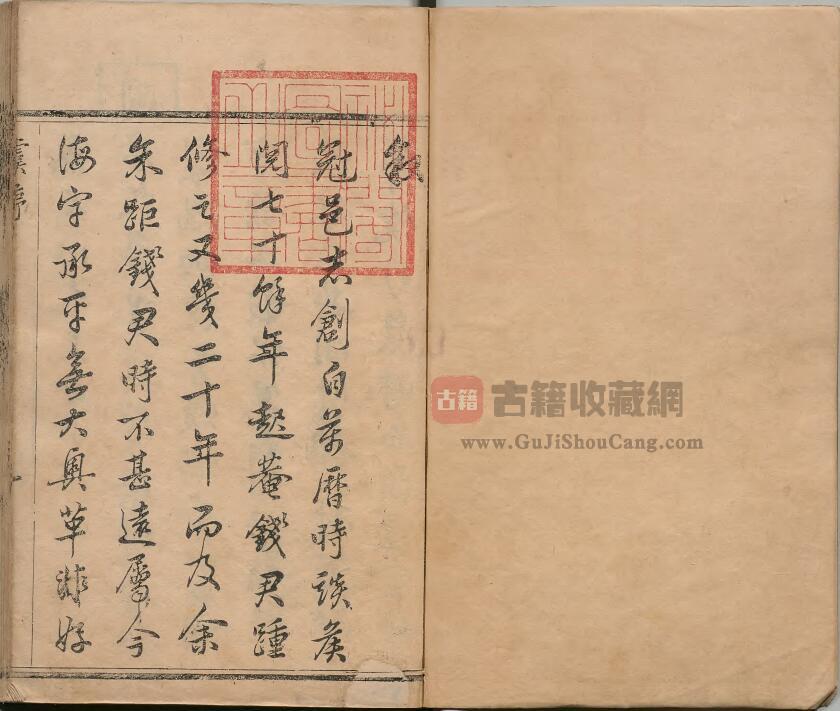 敘
冠邑志創自萬曆時談侯
閱七十餘年起菴錢君踵
修之又幾二十年而及余
余距錢君時不甚遠屬今
海宇承平無大興革非好
序
一
古籍
古籍收藏網
www.GuJiShouCang.com